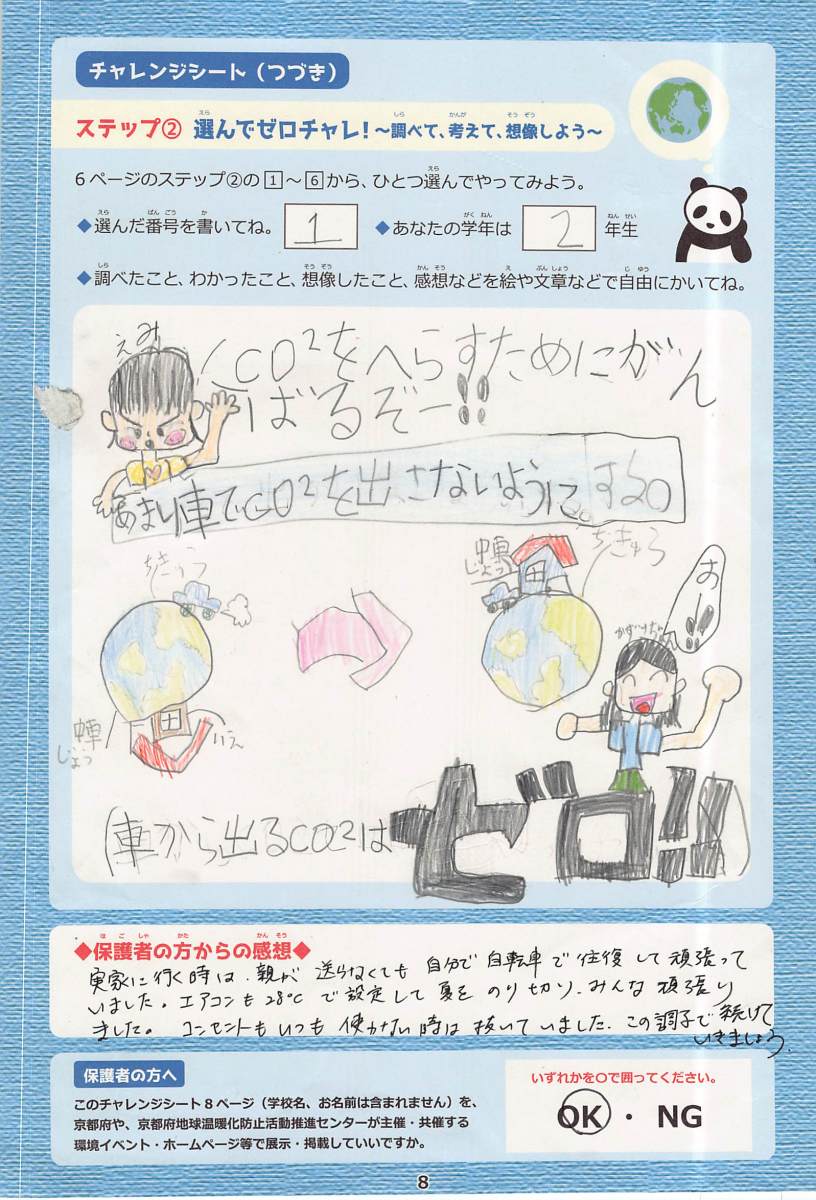 チャレンジシート（つづき）
ステップ② 選んでゼロチャレ！～調べて、考えて、想像しよう～
6ページのステップ②の1～6から、ひとつ選んでやってみよう。
◆選んだ番号を書いてね。 1 ◆あなたの学年は 2 年生
◆調べたこと、わかったこと、想像したこと、感想などを絵や文章などで自由にかいてね。
えみ
CO²をへらすためにがん
ばるぞー!!
あまり車でCO²を出さないように。する。
ちきゅう
ちきゅう
車
じょう
いえ
お
車から出るCO2は
ゼロ!!
◆保護者の方からの感想◆
実家に行く時は、親が送らなくても自分で自転車で往復して頑張って
いました。エアコンも28℃で設定して夏をのり切り、みんな頑張り
ました。コンセントもいつも使わない時は抜いていました。この調子で続けて
いきましょう。
保護者の方へ
このチャレンジシート8ページ（学校名、お名前は含まれません）を、
京都府や、京都府地球温暖化防止活動推進センターが主催・共催する
環境イベント・ホームページ等で展示・掲載していいですか。
いずれかを○で囲ってください。
OK・NG
8